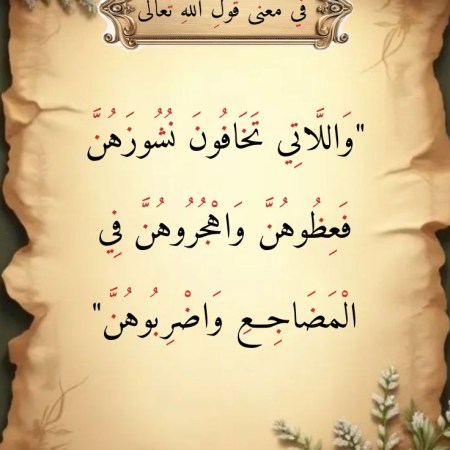 في معنى قول الله تعالى
"وَاللَّاتِي تَخَافُونَ نُشُوزَهُنَّ
فَعِظُوهُنَّ وَاهْجُرُوهُنَّ فِي
الْمَضَاجِـعِ وَاضْرِبُوهُنَّ"